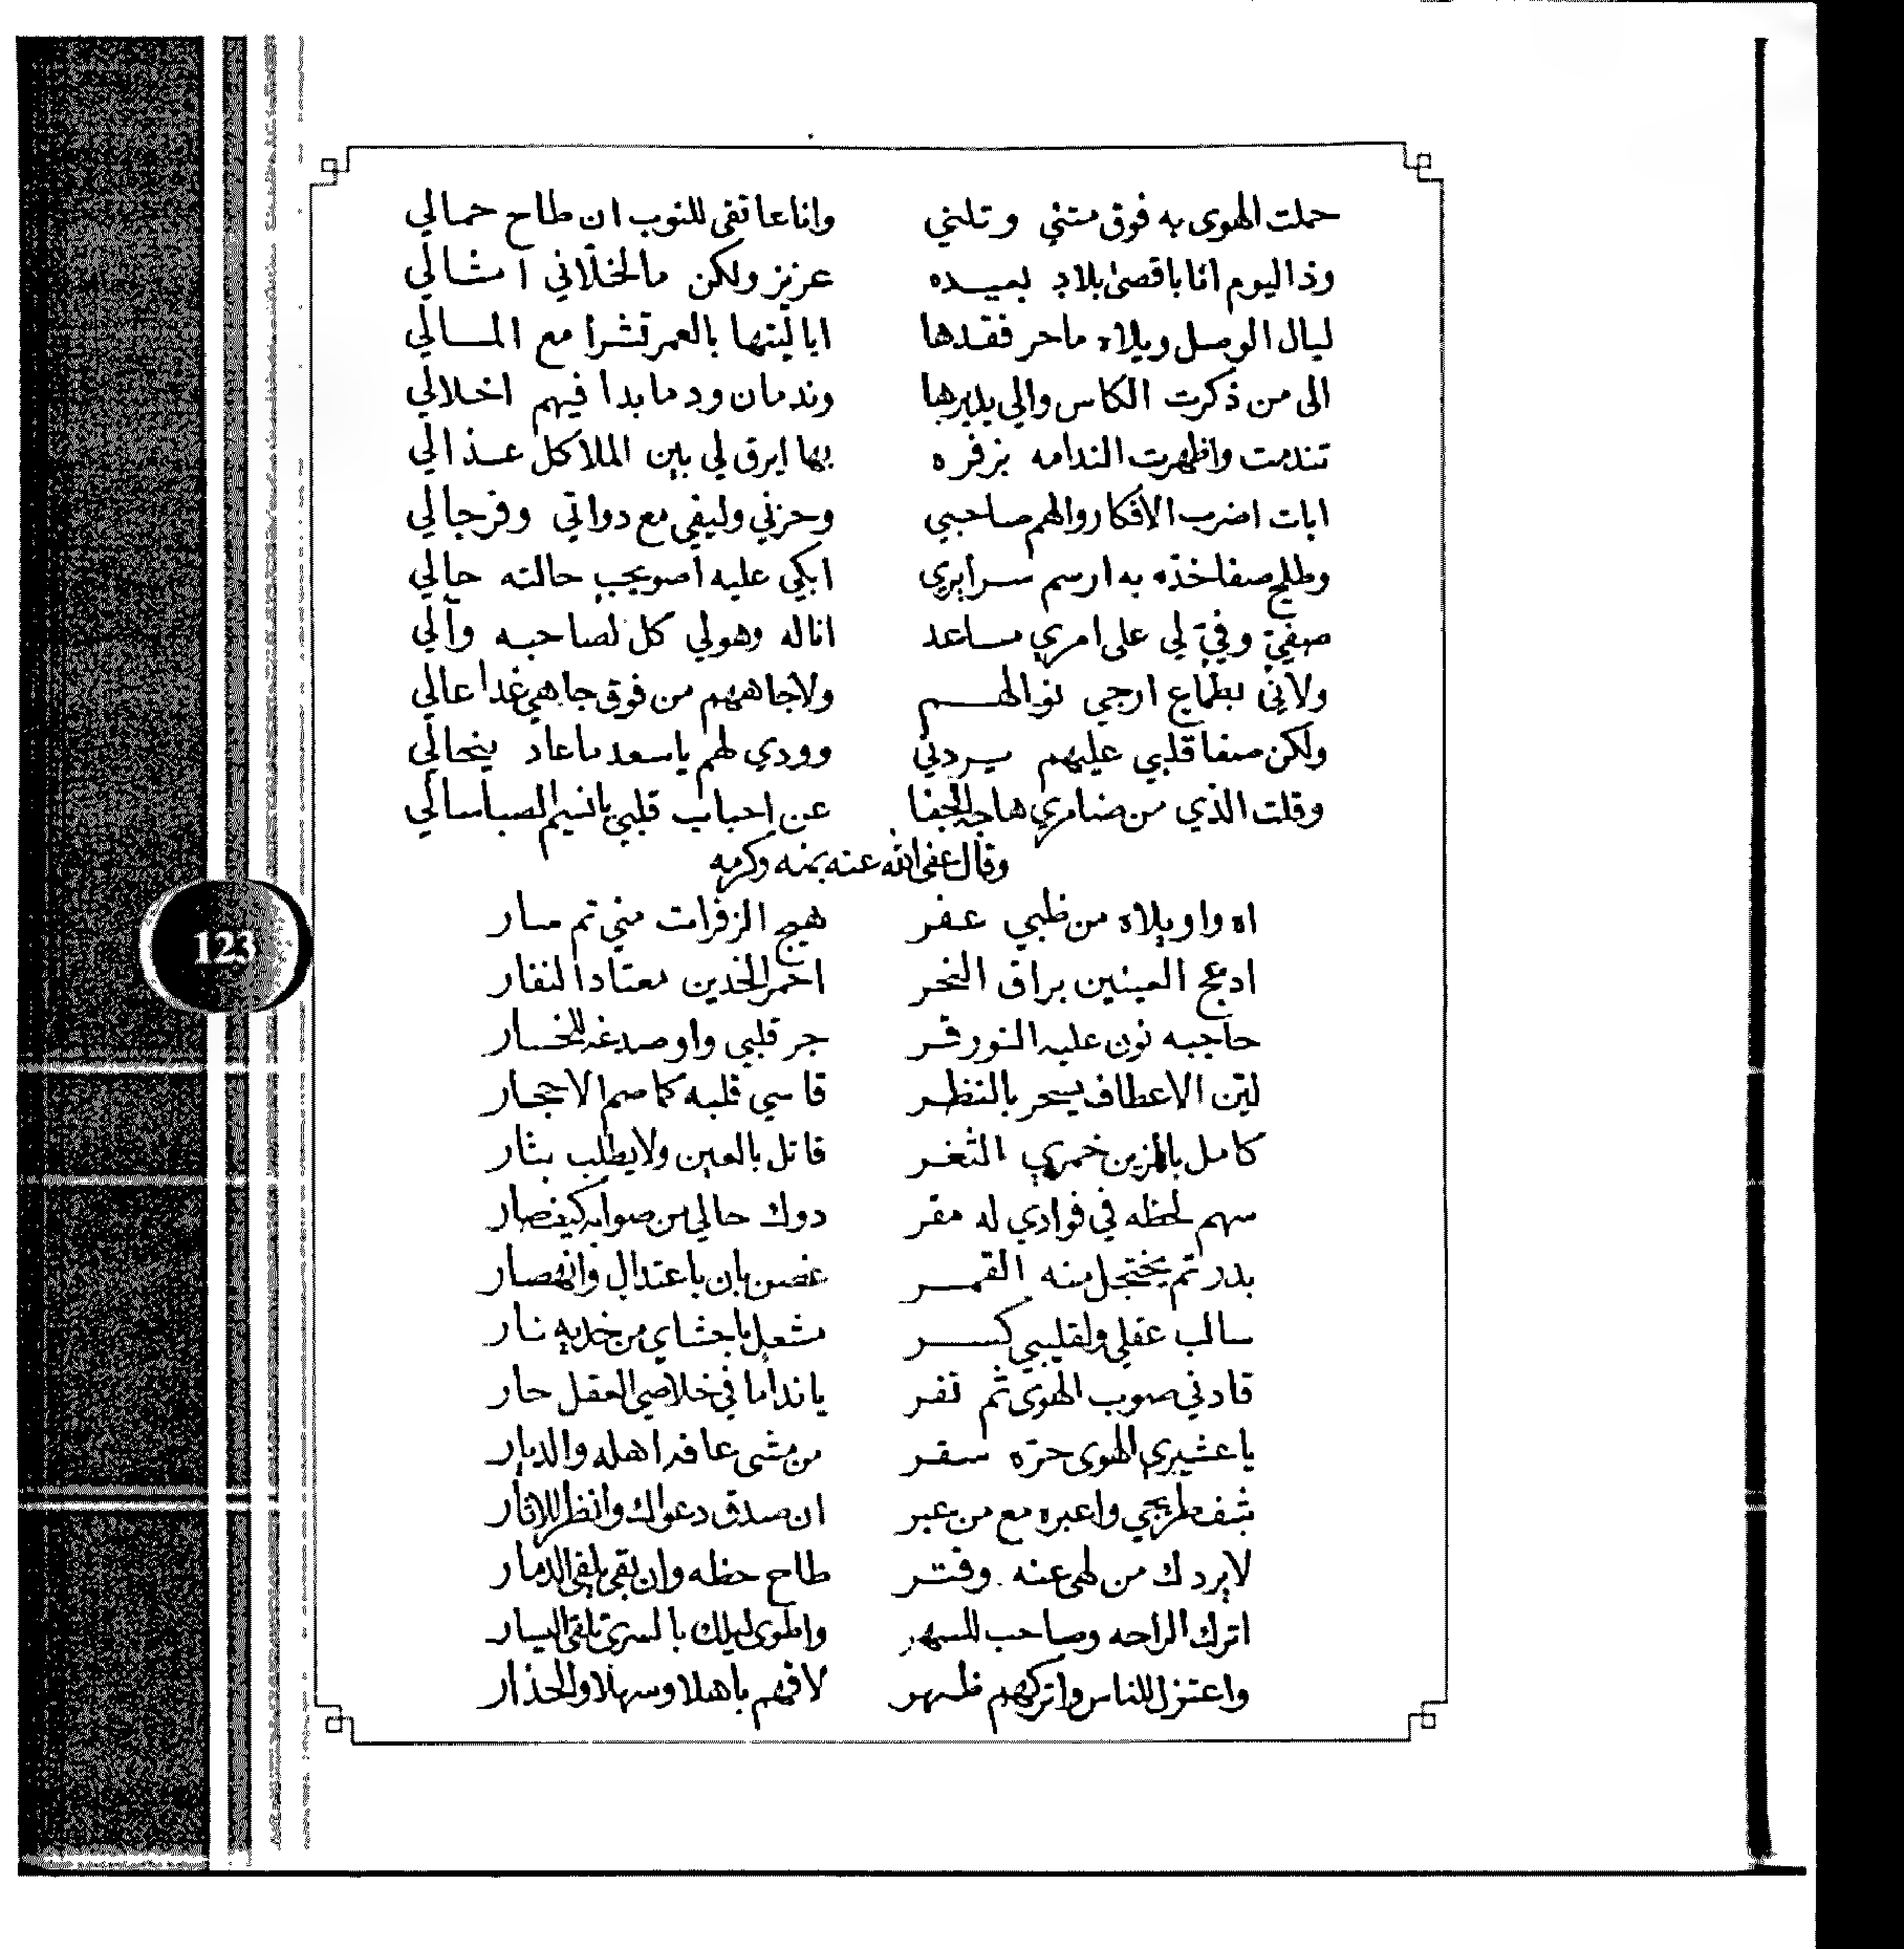 حملت الهوى به فوق متني وتلني وانا عاتقي للنوب ان طاح حمالي
وذا اليوم انا باقصى بلاد بعيده عزيز ولكن مالخلاني امثالي
ليال الوصل ويلاه ماحر فقدها ايا ليتها بالعمر تشرا مع المالي
الى من ذكرت الكاس والي يديرها وندمان ود ما بدا فيهم اخلالي
تندمت واظهرت الندامه بزفره بها ايرق لي بين الملا كل عذالي
ابات اضرب الافكار والهم صاحبي وحزني وليفي مع دواتي وفرجالي
وطلح صفا خذه به ارسم سرايري ابكي عليه اصويحب حالته حالي
صفيّ وفيّ لي على امري مساعد اناله وهولي كل لصاحبه وآلي
ولاني بطماع ارجي نوالهم ولا جاههم من فوق جاهي غدا عالي
ولكن صفا قلبي عليهم يردني وودي لهم ياسعد ما عاد ينحالي
وقلت الذي من ضامري هاجه الجفا عن احباب قلبي يانسيم الصبا سالي
وقال عفى الله عنه بمنه وكرمه
اه واويلاه من ظبي عفر هيج الزفرات مني ثم سار
ادعج العينين براق النحر احمر الخدين معتاد النفار
حاجبه نون عليه النور قر جر قلبي واو صدغه للخسار
ليّن الاعطاف يسحر بالنظر قاسي قلبه كما صم الاحجار
كامل بالزين خمري الثغر قاتل بالعين ولا يطلب بثار
سهم لحظه في فوادي له مقر دوك حالي من صوابه كيف صار
بدر تم يختجل منه القمر غصن بان باعتدال وانهصار
سالب عقلي ولقليبي كسر مشعل باحشاي من خديه نار
قادني صوب الهوى ثم نفر ياندا ما في خلاصي العقل حار
ياعشيري الهوى حرّه سقر من مشى عافه اهله والديار
شف طريجي واعبره مع من عبر ان صدق دعواك وانظر للاثار
لايردك من لهى عنه وفتر طاح حظه وان بقي يلقى الدمار
اترك الراحه وصاحب للسهر واطوى ليلك بالسرى تلقى اليسار
واعتزل للناس واتركهم ظهر لافهم باهلا وسهلا والحذار
123